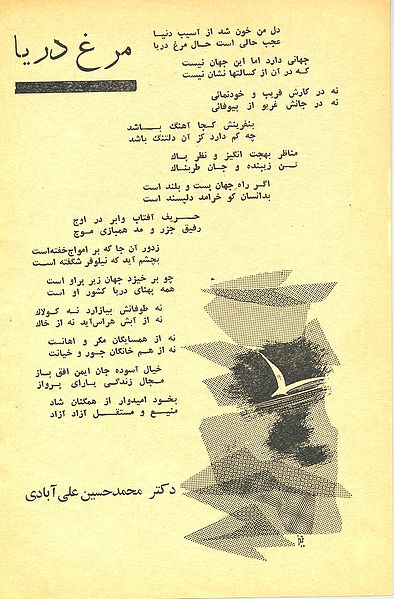 مرغ دریا
دل من خون شد از آسیب دنیا
عجب حالی است حال مرغ دریا
جهانی دارد اما این جهان نیست
که در آن از کسالتها نشان نیست
نه در کارش فریب و خودنمائی
نه در جانش غریو از بیوفائی
بنفرینش کجا آهنگ باشد
چه کم دارد کز آن دلتنگ باشد
مناظر بهجت انگیز و نظر پاک
تن زیبنده و جان طربناک
اگر راه جهان پست و بلند است
بدانسان کو خرامد دلپسند است
حریف آفتاب وابر در اوج
رفیق جزر و مد همبازی موج
زدور آن جا که بر امواج خفته‌است
بچشم آید که نیلوفر شگفته است
چو بر خیزد جهان زیر پراو است
همه پهنای دریا کشور او است
نه طوفانش بیازارد نه کولاک
نه از آبش هراس‌آید نه از خاك
نه از همسایگان مکر و اهانت
نه از هم خانگان جور و خیانت
خیال آسوده جان ایمن افق باز
مجال زندگی یارای پرواز
بخود امیدوار از همگنان شاد
منیع و مستقل آزاد آزاد
دکتر محمدحسین علی‌آبادی